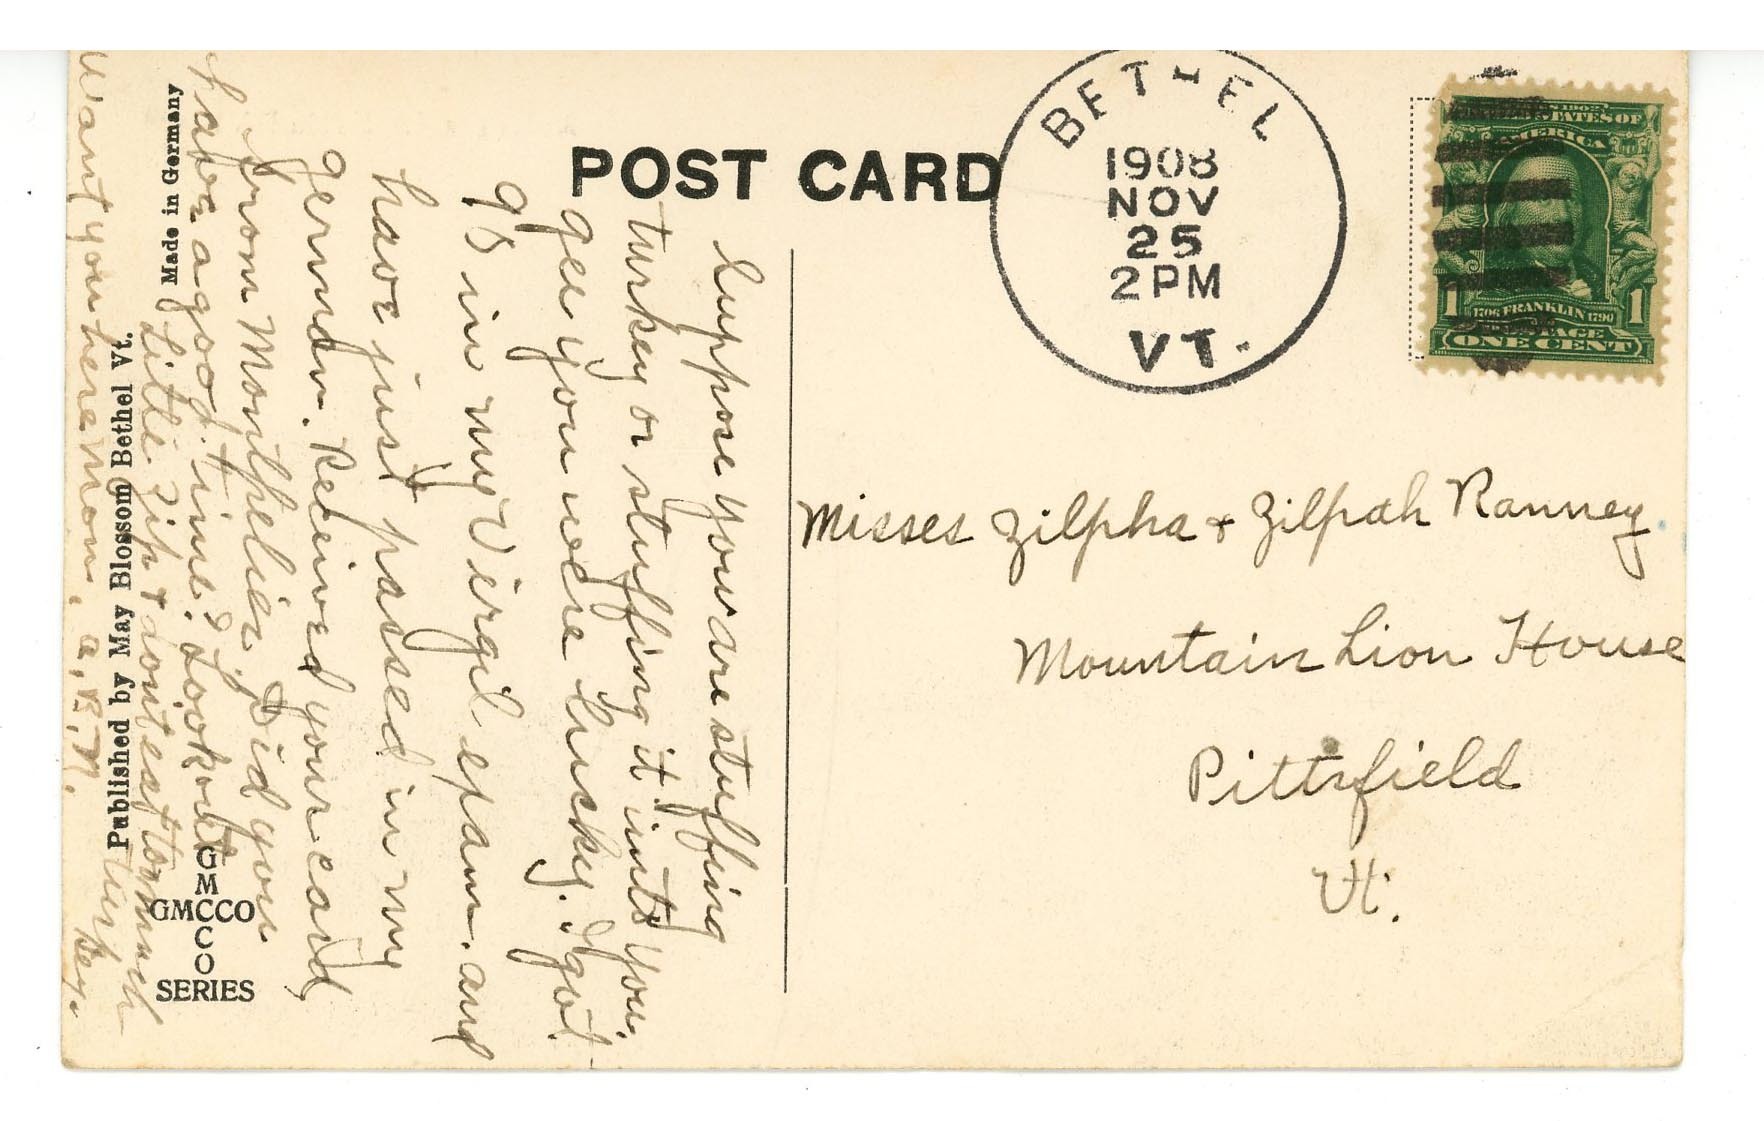 POST CARD
BETHEL
1908
NOV
25
2PM
VT.
SERIES 1902
UNITED STATES OF
AMERICA
1706 FRANKLIN 1790
POSTAGE
1 1
ONE CENT
Misses Zilpha & Zilpah Ranney.
Mountain Lion House
Pittsfield
Vt.
Suppose you are stuffing
turkey or stuffing it into you.
gee you were lucky. I got
95 in my Virgil exam. and
have just passed in my
german. Received your card
from Montpelier. Did you
have a good time? Look out
Little Zip & dont est to much
turkey.
Want you here mon. a.B.M.
Made in Germany
Published by May Blossom Bethel Vt.
G
M
GMCCO
C
O
SERIES